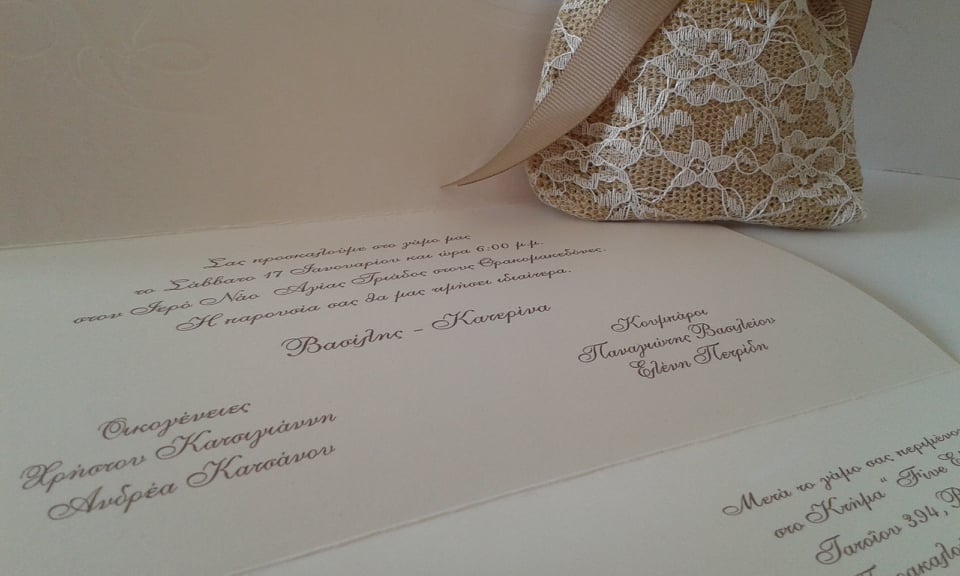 Σας προσκαλούμε στο γάμο μας
το Σάββατο 17 Ιανουαρίου και ώρα 6:00 μ.μ.
στον Ιερό Ναό Αγίας Τριάδος στους Θρακομακεδόνες.
Η παρουσία σας θα μας τιμήσει ιδιαίτερα.
Βασίλης - Κατερίνα
Κουμπάροι
Παναγιώτης Βασιλείου
Ελένη Πετρίδη
Οικογένειες
Χρήστου Κατσιγιάννη
Ανδρέα Κατσάνου
Μετά το γάμο σας περιμένο
στο Κτήμα "Five
Τατοΐου 394,